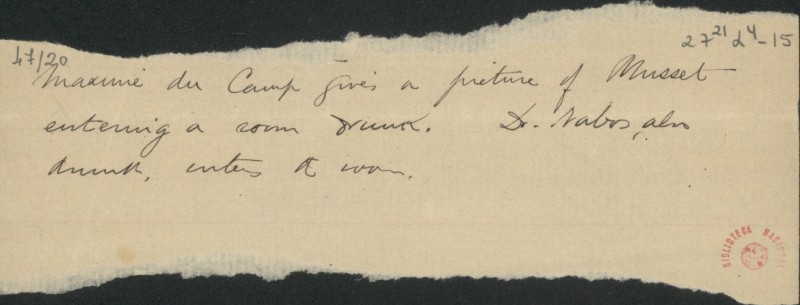 47/20
27²¹ L⁴-15
Maxime du Camp gives a picture of Musset
entering a room drunk. Dr. Nabos, also
drunk, enters room.
BIBLIOTECA NACIONAL